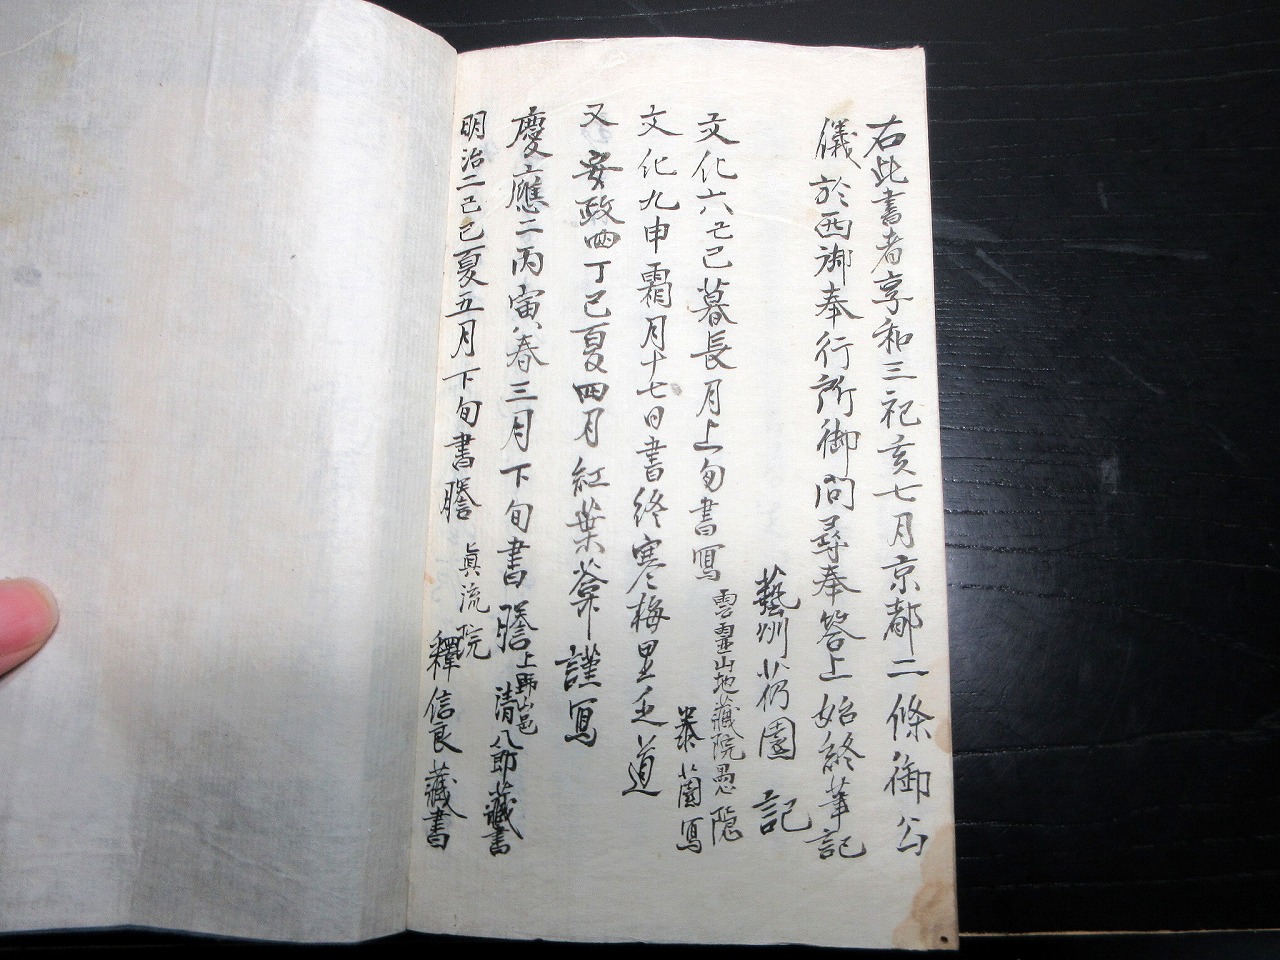 右此書者享和三祀亥七月京都二條御公
儀於西御奉行所御問尋奉答上始終筆記
藝州 園 記
文化六己巳暮長月上旬書寫
雲靈山地藏院愚隱
薗寫
文化九申霜月十七日書終寒梅里乏道
又安政四丁巳夏四月紅葉菴謹寫
慶應二丙寅八春三月下旬書謄
上野山邑
清八郎藏書
明治二己巳夏五月下旬書謄
眞流院
釋信良藏書